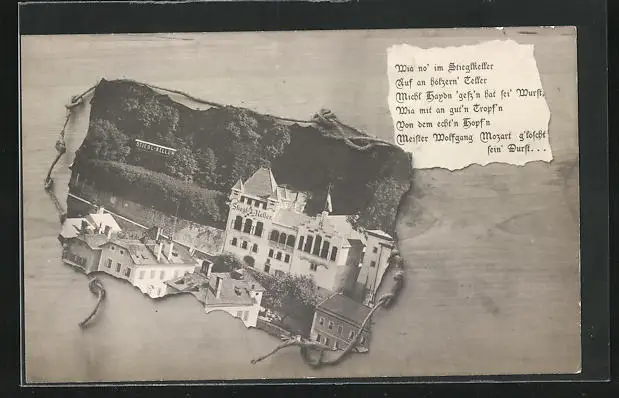 Wia no' im Stieglkeller
Auf an hölzern' Teller
Michl Haydn 'geß'n hat sei' Wurst,
Wia mit an gut'n Tropf'n
Von dem echt'n Hopf'n
Meister Wolfgang Mozart g'löscht
sein' Durst...
STIEGL-KELLER
Stiegl-Keller